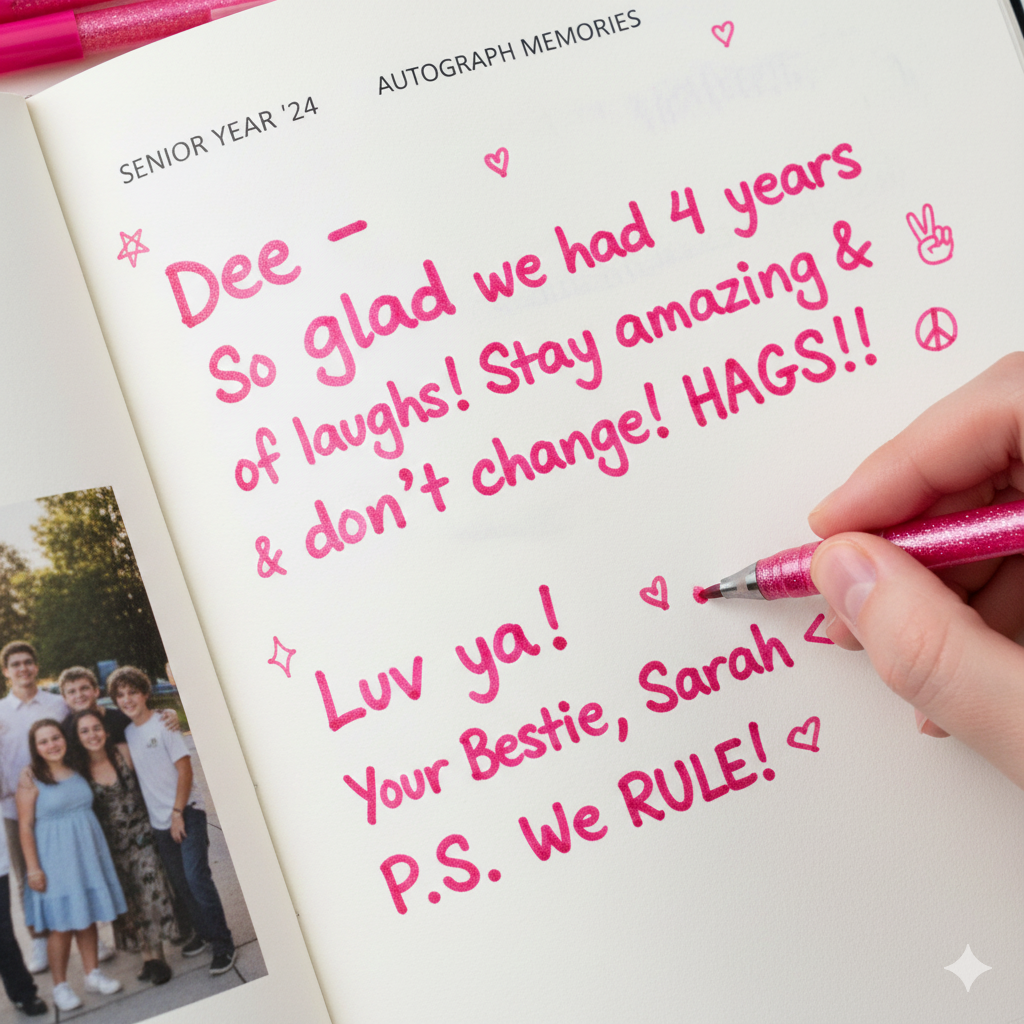 SENIOR YEAR '24
AUTOGRAPH MEMORIES
Dee –
So glad we had 4 years
of laughs! Stay amazing &
& don't change! HAGS!!
Luv ya!
Your Bestie, Sarah <
P.S. We RULE!